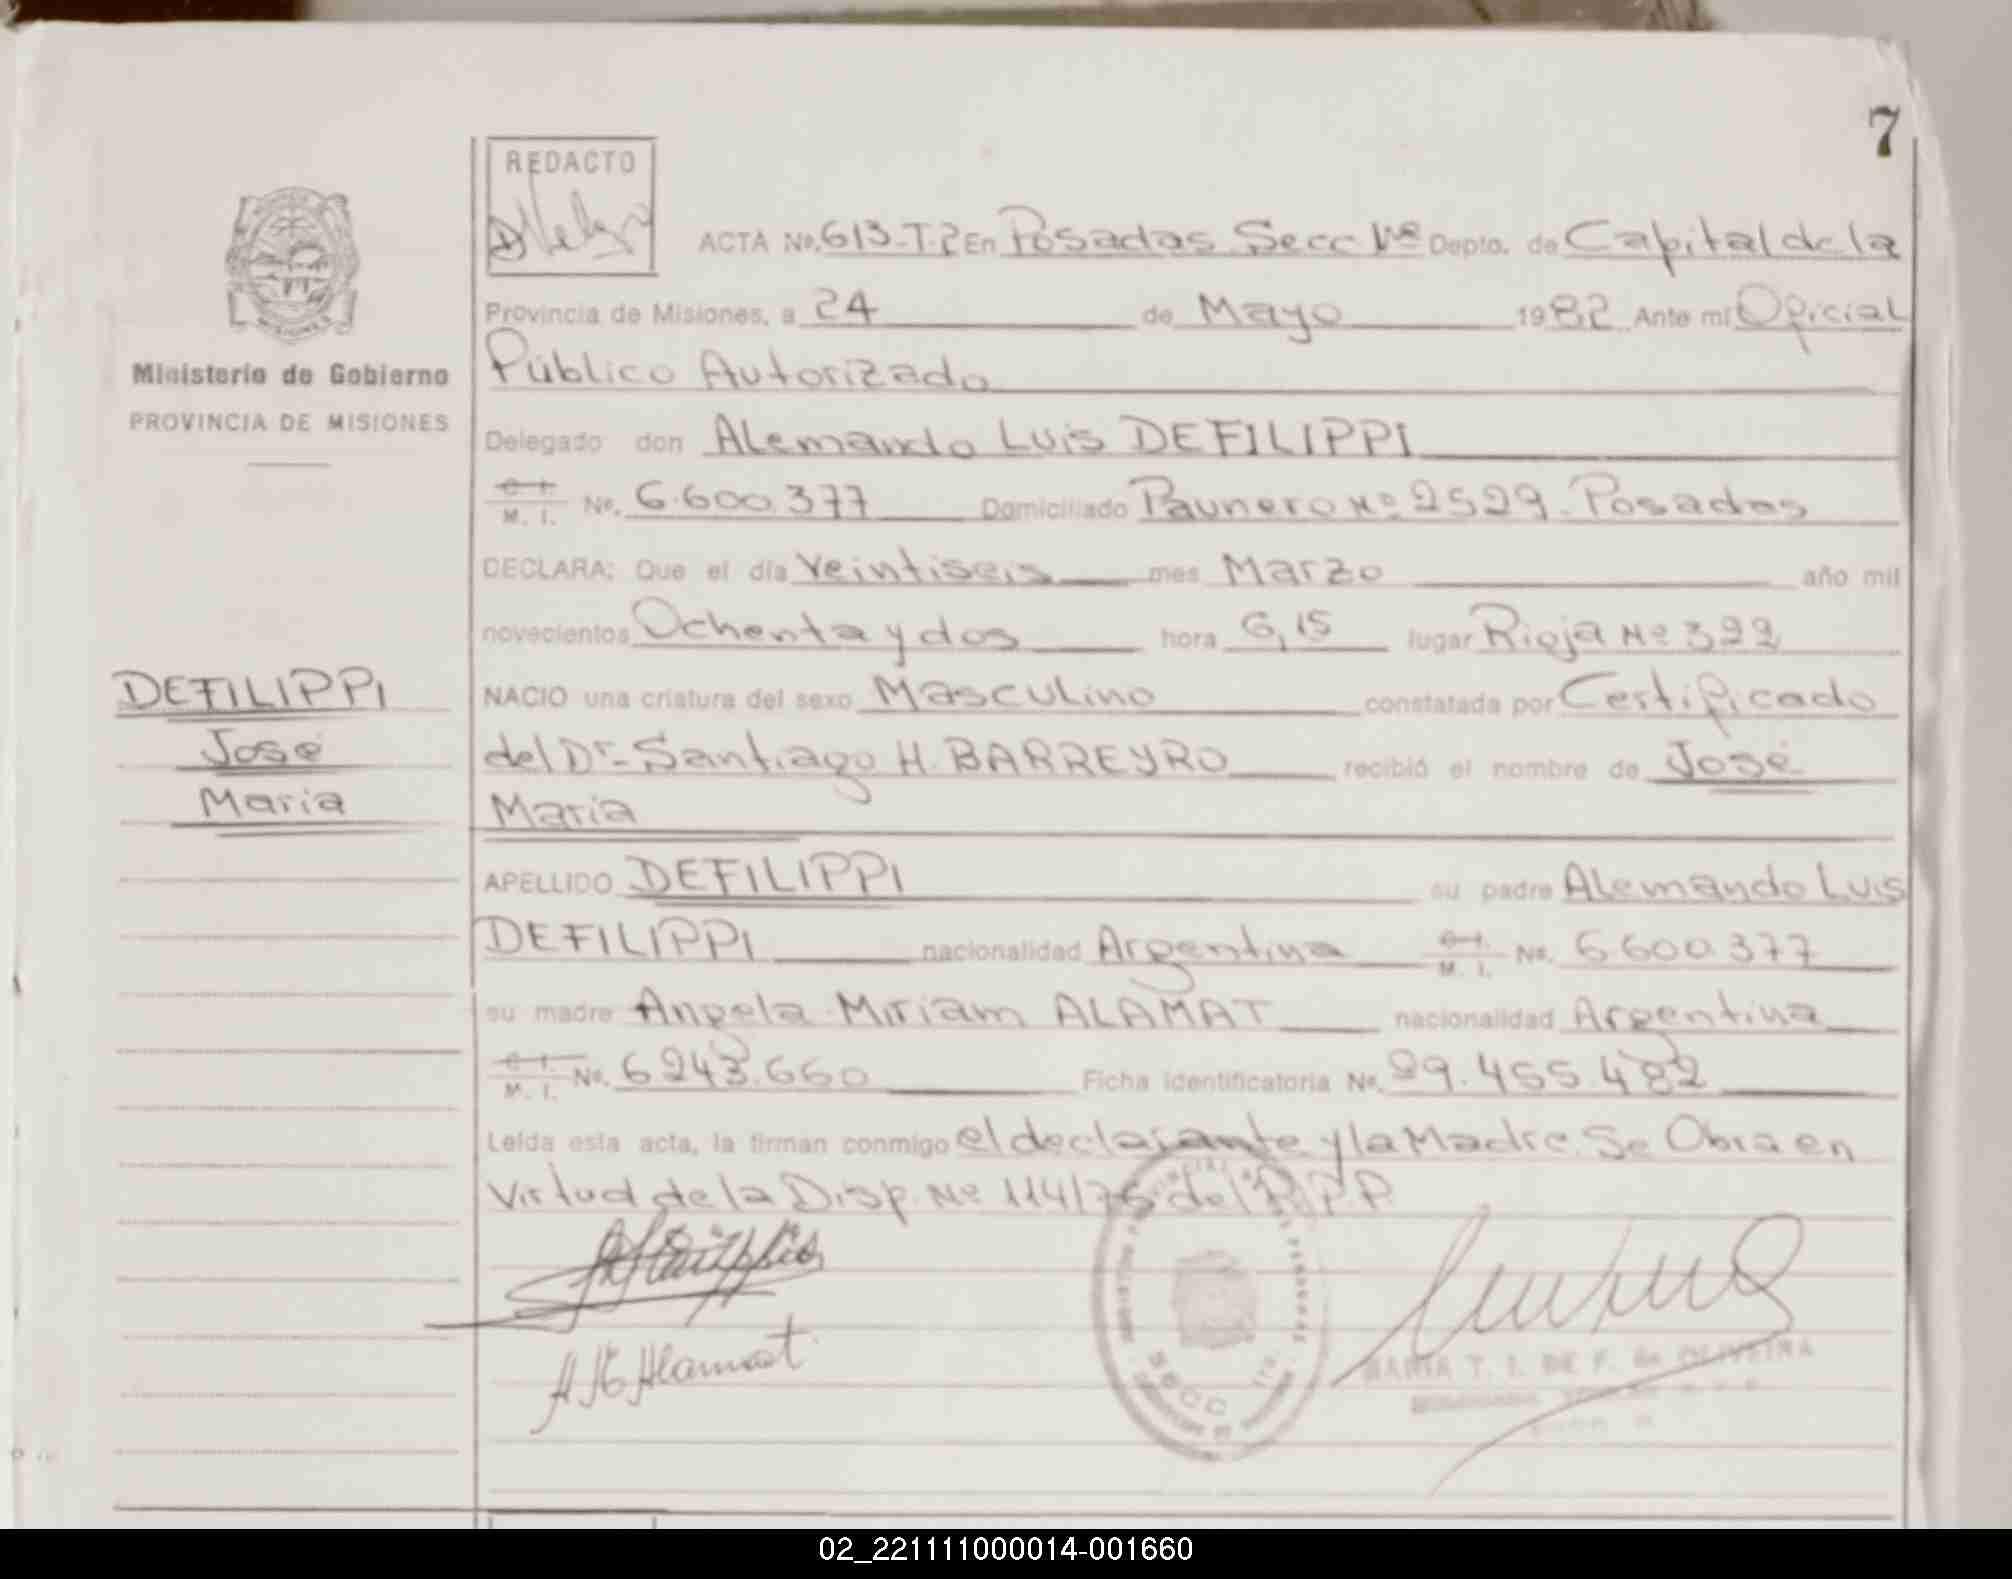 7
REDACTO
ACTA No. 613-T.2 En Posadas Secc 1ª Depto. de Capital de la
Provincia de Misiones, a 24 de Mayo 1982 Ante mi Oficial
Público Autorizado
Delegado don Alemando Luis DEFILIPPI
C. I. M. I. No. 6.600.377 Domiciliado Paunero Nº 2529. Posadas
DECLARA: Que el día Veintiseis mes Marzo año mil
novecientos Ochenta y dos hora 6,15 lugar Rioja Nº 322
NACIO una criatura del sexo Masculino constatada por Certificado
del Dr. Santiago H. BARREYRO recibió el nombre de José
Maria
APELLIDO DEFILIPPI su padre Alemando Luis
DEFILIPPI nacionalidad Argentina C. I. M. I. No. 6.600.377
su madre Angela Miriam ALAMAT nacionalidad Argentina
C. I. M. I. No. 6243.660 Ficha identificatoria No. 29.455.482
Leída esta acta, la firman conmigo el declarante y la Madre. Se Obra en
Virtud de la Disp. Nº 114/75 del R.P.P.
A M Alamat
SECC 1ra.
MARIA T. I. DE F. de OLIVEIRA
MISIONES
Ministerio de Gobierno
PROVINCIA DE MISIONES
DEFILIPPI
José
Maria
02_221111000014-001660